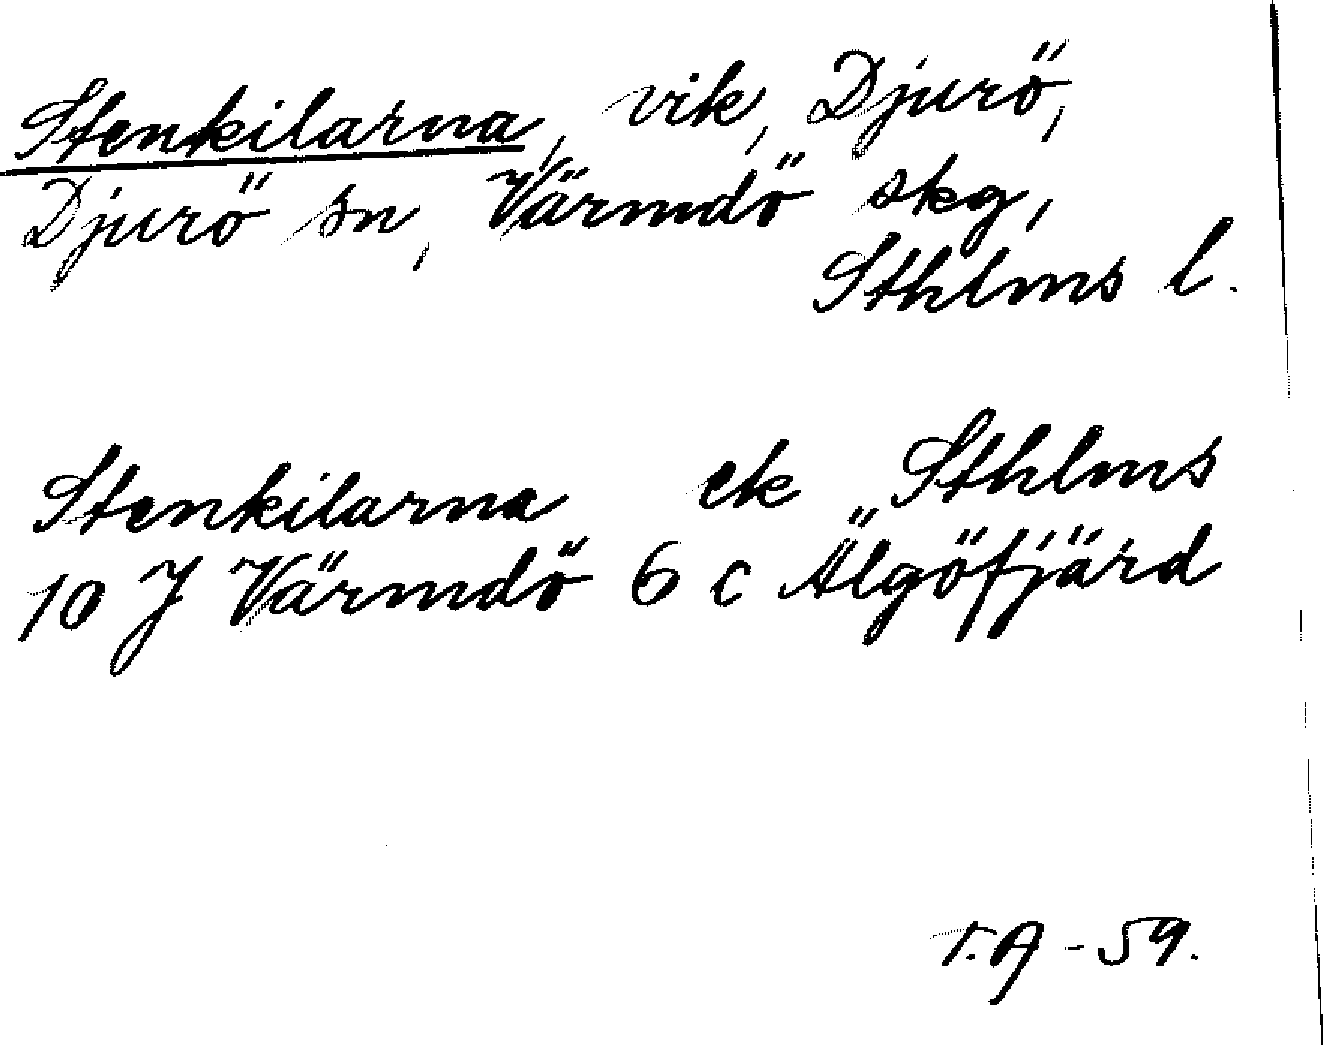 Stenkilarna, vik, Djurö,
Djurö sn, Värmdö skg,
Sthlms l.
Stenkilarna ek Sthlms
10 J Värmdö 6 c Älgöfjärd
T.A - 59.